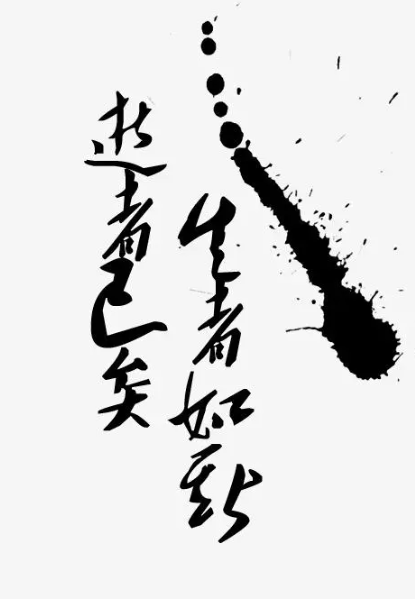 逝者已矣
生者如斯